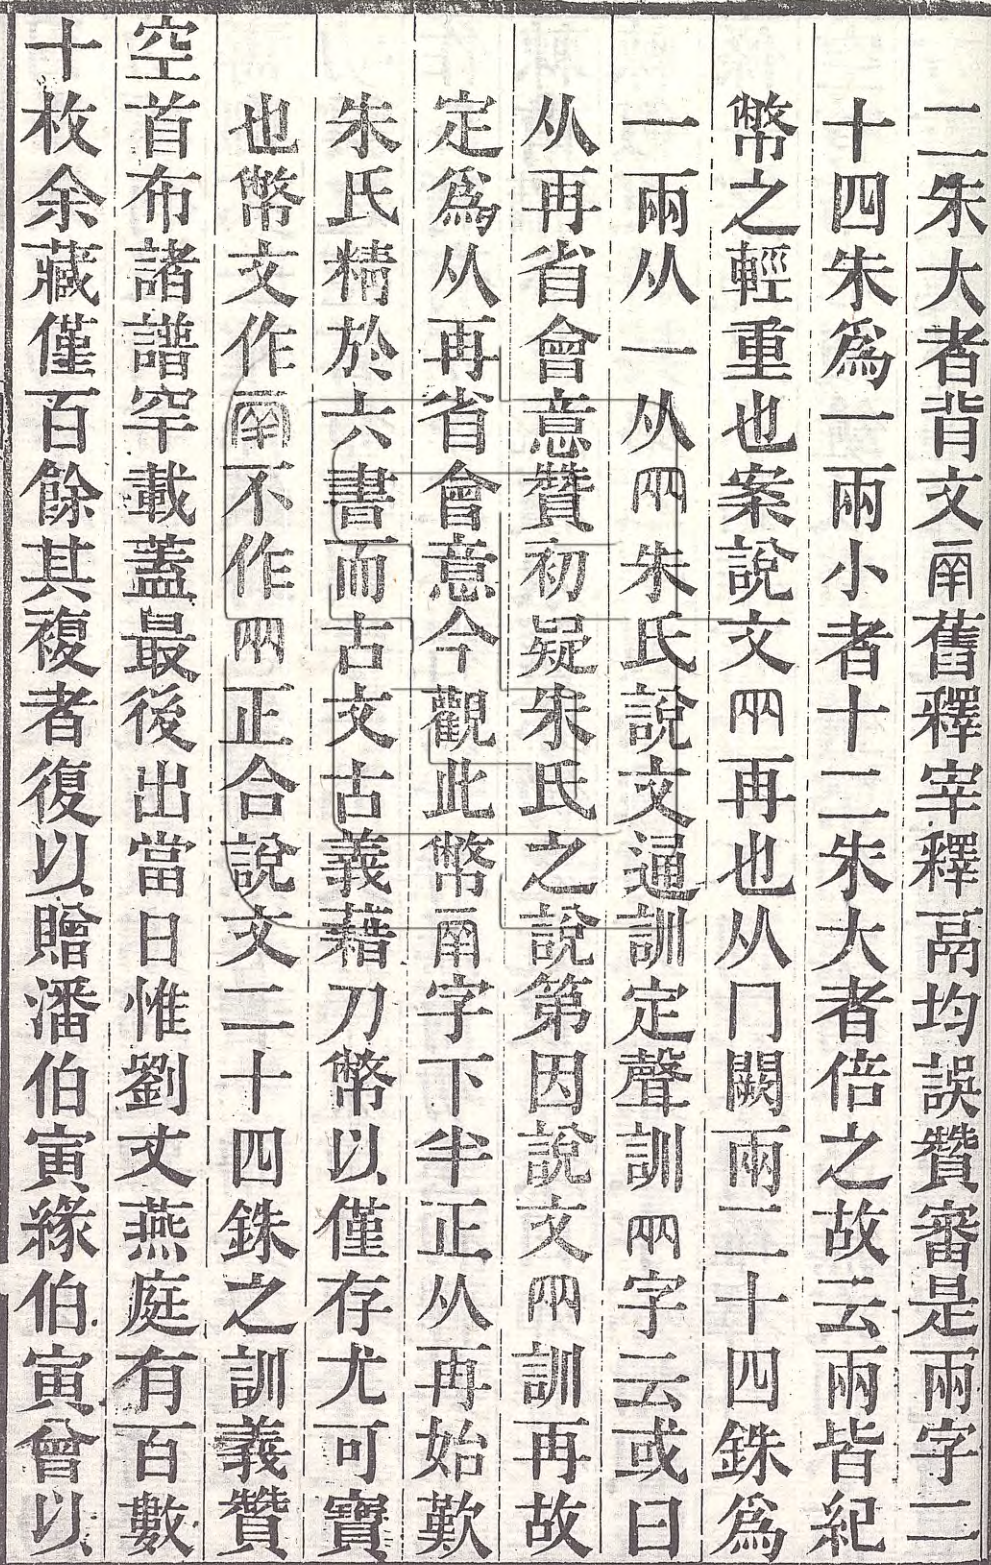 二朱大者背文舊釋宰釋鬲均誤贊審是兩字二
十四朱爲一兩小者十二朱大者倍之故云兩皆紀
幣之輕重也案說文㒳再也从冂闕兩二十四銖爲
一兩从一从㒳朱氏說文通訓定聲訓㒳字云或曰
从再省會意贊初疑朱氏之說第因說文㒳訓再故
定爲从再省會意今觀此幣字下半正从再始歎
朱氏精於六書而古文古義藉刀幣以僅存尤可寶
也幣文作不作㒳正合說文二十四銖之訓義贊
空首布諸譜罕載蓋最後出當日惟劉丈燕庭有百數
十枚余藏僅百餘其複者復以贈潘伯寅緣伯寅曾以